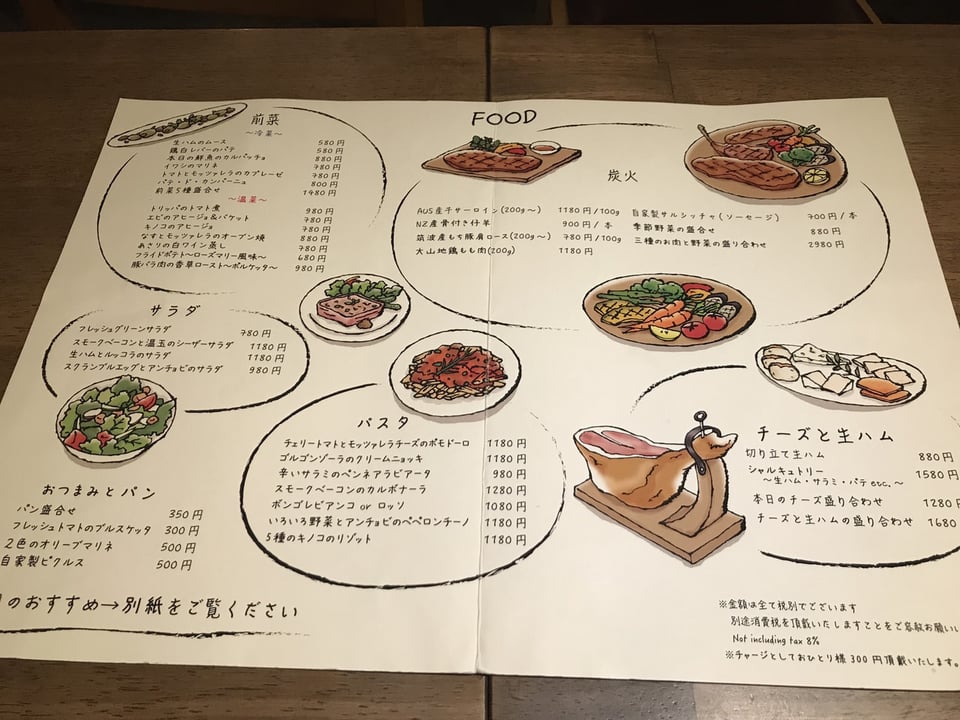 FOOD
前菜
～冷菜～
生ハムのムース 580円
鶏白レバーのパテ 580円
本日の鮮魚のカルパッチョ 880円
イワシのマリネ 780円
トマトとモッツァレラのカプレーゼ 780円
パテ・ド・カンパーニュ 800円
前菜5種盛合せ 1480円
～温菜～
トリッパのトマト煮 980円
エビのアヒージョ&バケット 780円
キノコのアヒージョ 780円
なすとモッツァレラのオーブン焼 880円
あさりの白ワイン蒸し 780円
フライドポテト～ローズマリー風味～ 680円
豚バラ肉の香草ロースト～ポルケッタ～ 980円
炭火
AUS産牛サーロイン(200g～) 1180円/100g
NZ産骨付き仔羊 900円/本
筑波産もち豚肩ロース(200g～) 780円/100g
大山地鶏もも肉(200g) 1180円
自家製サルシッチャ(ソーセージ) 700円/本
季節野菜の盛合せ 880円
三種のお肉と野菜の盛り合わせ 2980円
サラダ
フレッシュグリーンサラダ 780円
スモークベーコンと温玉のシーザーサラダ 1180円
生ハムとルッコラのサラダ 1180円
スクランブルエッグとアンチョビのサラダ 980円
パスタ
チェリートマトとモッツァレラチーズのポモドーロ 1180円
ゴルゴンゾーラのクリームニョッキ 1180円
辛いサラミのペンネアラビアータ 980円
スモークベーコンのカルボナーラ 1280円
ボンゴレビアンコ or ロッソ 1080円
いろいろ野菜とアンチョビのペペロンチーノ 1180円
5種のキノコのリゾット 1180円
チーズと生ハム
切り立て生ハム 880円
シャルキュトリー 1580円
～生ハム・サラミ・パテ etc.～
本日のチーズ盛り合わせ 1280円
チーズと生ハムの盛り合わせ 1680
おつまみとパン
パン盛合せ 350円
フレッシュトマトのブルスケッタ 300円
2色のオリーブマリネ 500円
自家製ピクルス 500円
のおすすめ→別紙をご覧ください
※金額は全て税別でございます
別途消費税を頂戴いたしますことをご容赦お願いい
Not including tax 8%
※チャージとしておひとり様300円頂戴いたします。